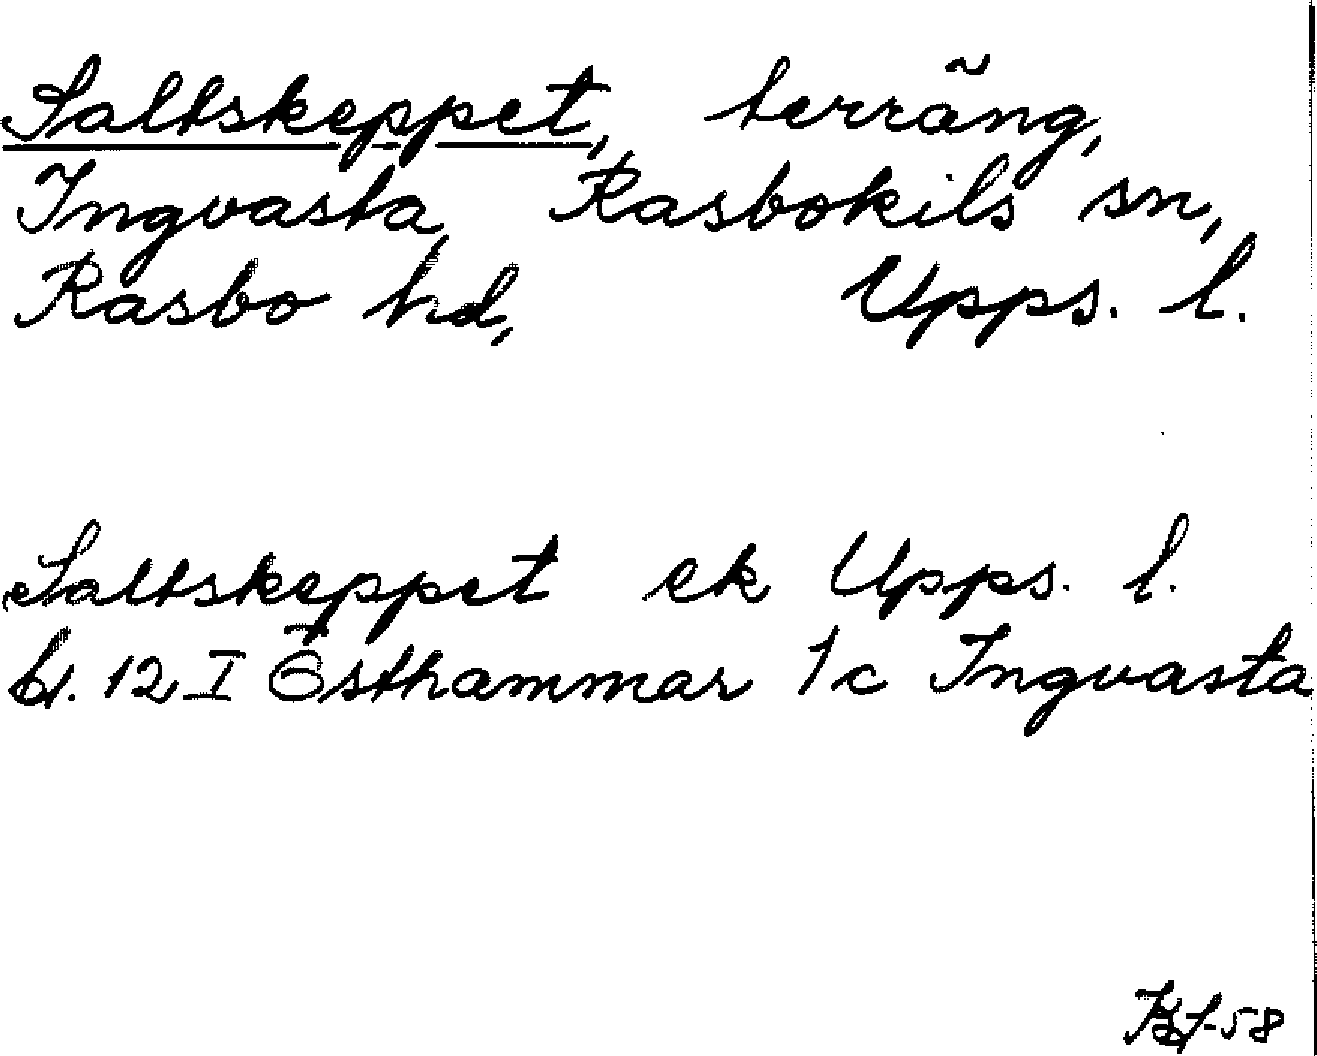 Saltskeppet, terräng,
Ingvasta, Rasbokils sn,
Rasbo hd, Upps. l.
Saltskeppet ek Upps. l.
bl. 12 I Östhammar 1c Ingvasta
58